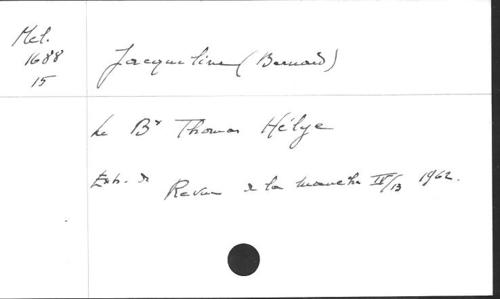 Mel.
1688
15
Jacqueline (Bernard)
Le Bx Thomas Hélye
Extr. de Revue de la Manche IV/13 1962.